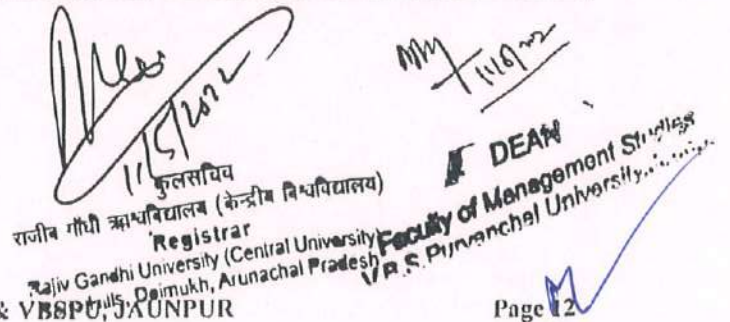 11/5/2022
कुलसचिव
राजीव गाँधी विश्वविद्यालय (केन्द्रीय विश्वविद्यालय)
Registrar
Rajiv Gandhi University (Central University)
Hills, Doimukh, Arunachal Pradesh
DEAN
Faculty of Management Studies
V.B.S. Purvanchal University,
& VBSPU, JAUNPUR
Page 12